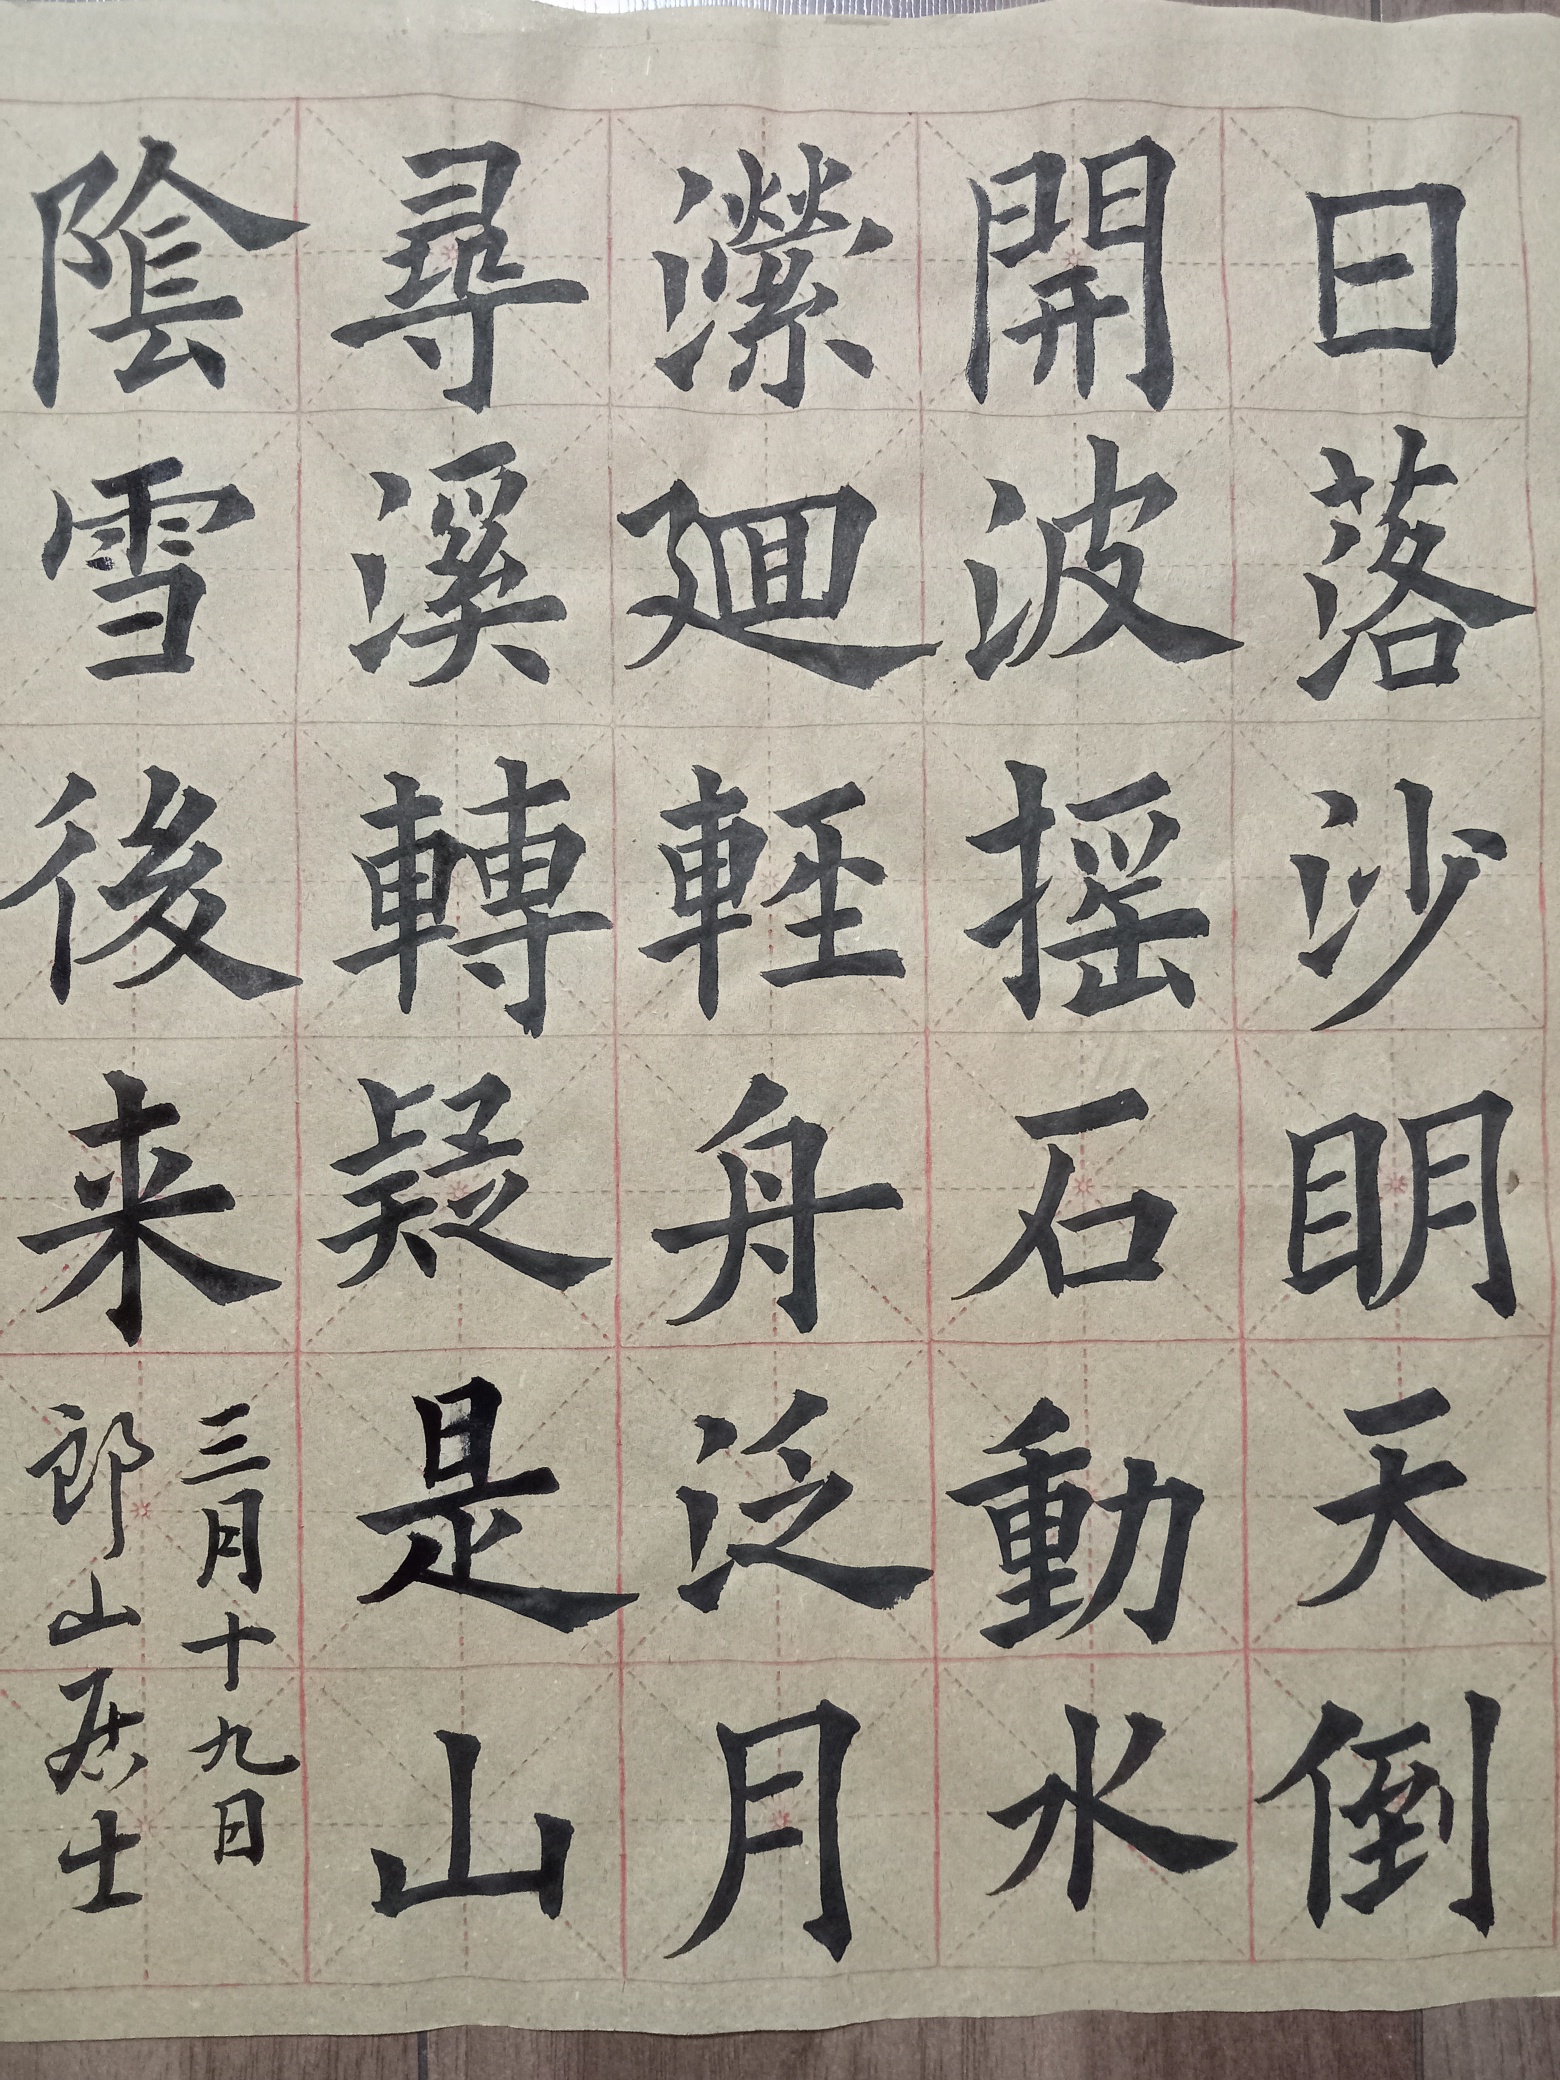 日落沙明天倒
開波摇石動水
瀠廻輕舟泛月
尋溪轉疑是山
陰雪後来
三月十九日
郎山居士